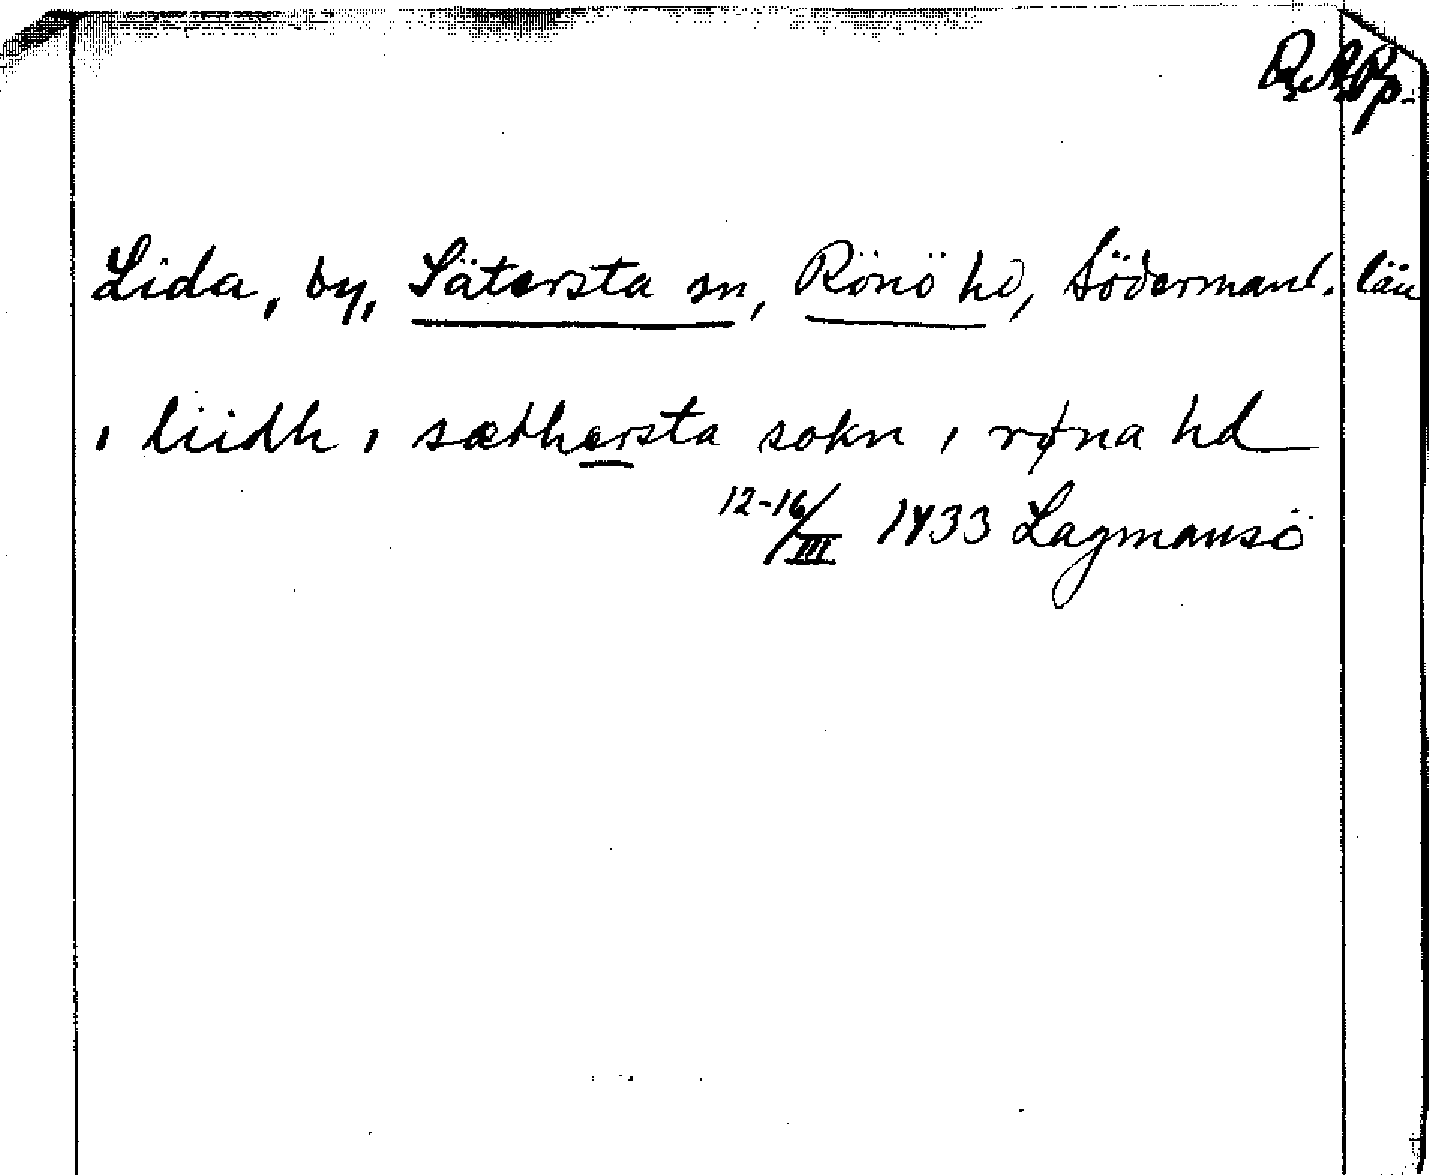 RAPp.
Lida, by, Sätersta sn, Rönö hd, Södermanl. län
, liidh , sæthersta sokn , røna hd
12-16/III 1433 Lagmansö